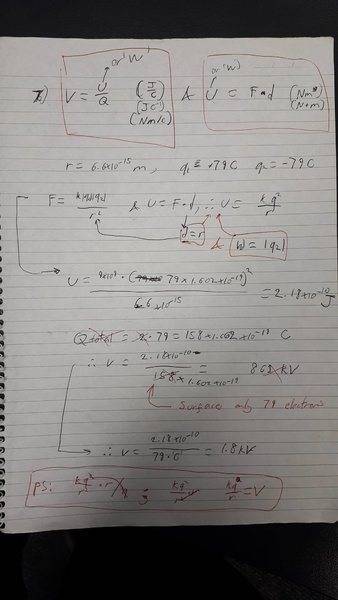 or 'W'
7) V = U/Q (J/C) (JC⁻¹) (Nm/C) & U = F•d (Nm) (N*m)
or 'W'
r = 6.6x10⁻¹⁵ m, q₁ = +79C q₂ = -79C
F = k|q₁||q₂|/r² & U = F·d, ∴ U = kq²/r
d=r & |q₁| = |q₂|
U = 9x10⁹ · (79x1.602x10⁻¹⁹)² / 6.6x10⁻¹⁵ = 2.18x10⁻¹⁰ J
Q total = 2·79 = 158x1.602x10⁻¹⁹ C
∴ V = 2.18x10⁻¹⁰ / 158x1.602x10⁻¹⁹ = KV
Surface only 79 electrons
∴ V = 2.18x10⁻¹⁰ / 79·e = 1.8KV
PS: kq²/r² · r / q = kq²/r kq/r = V